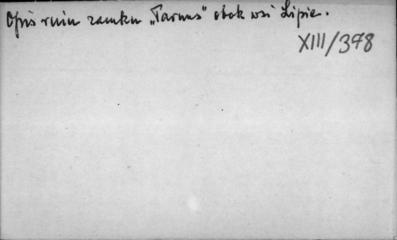 Opis ruin zamku „Tarnus" obok wsi Lipie.
XIII/378